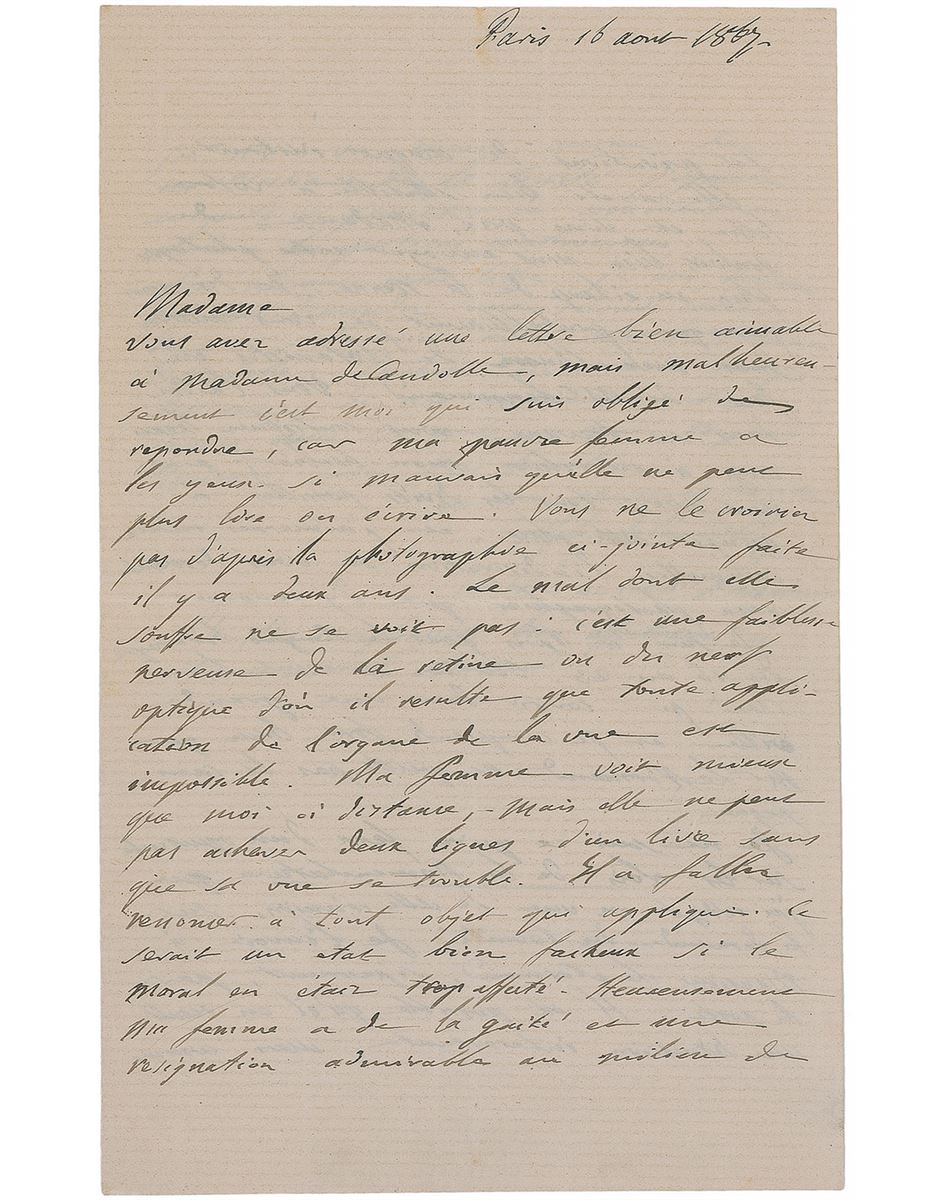 Paris 16 aout 1867.
Madame
Vous avez adressé une lettre bien aimable
à Madame de Candolle, mais malheureu-
sement c'est moi qui suis obligé de
repondre, car ma pauvre femme a
les yeux si mauvais qu'elle ne peut
plus lire ou écrire. Vous ne le croiriez
pas d'après la photographie ci-jointe faite
il y a deux ans. Le mal dont elle
souffre ne se voit pas: c'est une faiblesse
nerveuse de la retine ou du nerf
optique d'où il resulte que toute appli-
cation de l'organe de la vue est
impossible. Ma femme voit mieux
que moi à distance, mais elle ne peut
pas achever deux lignes d'un livre sans
que sa vue se trouble. Il a fallu
renoncer à tout objet qui applique. Ce
serait un etat bien facheux si le
moral en était trop affecté. Heureusement
ma femme a de la gaité et une
resignation admirable au milieu de